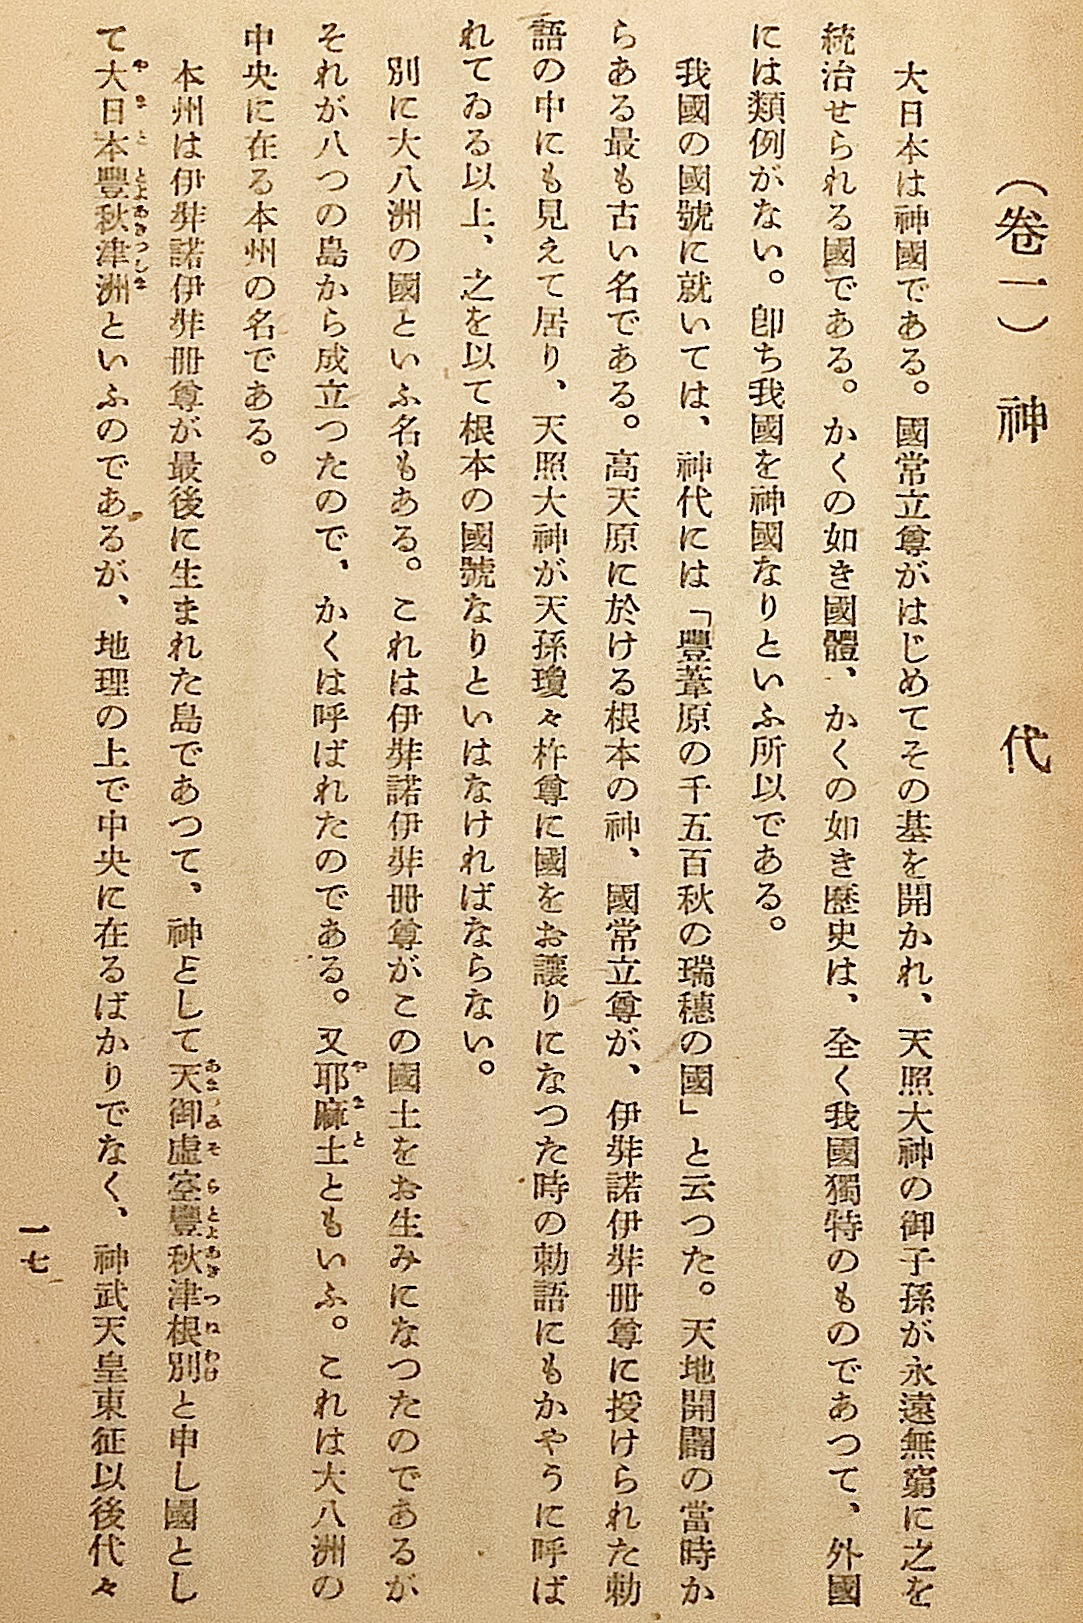 （卷一）　神　　代
大日本は神國である。國常立尊がはじめてその基を開かれ、天照大神の御子孫が永遠無窮に之を
統治せられる國である。かくの如き國體、かくの如き歷史は、全く我國獨特のものであつて、外國
には類例がない。卽ち我國を神國なりといふ所以である。
我國の國號に就いては、神代には「豐葦原の千五百秋の瑞穗の國」と云つた。天地開闢の當時か
らある最も古い名である。高天原に於ける根本の神、國常立尊が、伊弉諾伊弉冊尊に授けられた勅
語の中にも見えて居り、天照大神が天孫瓊々杵尊に國をお讓りになつた時の勅語にもかやうに呼ば
れてゐる以上、之を以て根本の國號なりといはなければならない。
別に大八洲の國といふ名もある。これは伊弉諾伊弉冊尊がこの國土をお生みになつたのであるが
それが八つの島から成立つたので、かくは呼ばれたのである。又耶麻土ともいふ。これは大八洲の
中央に在る本州の名である。
本州は伊弉諾伊弉冊尊が最後に生まれた島であつて、神として天御虛空豐秋津根別と申し國とし
て大日本豐秋津洲といふのであるが、地理の上で中央に在るばかりでなく、神武天皇東征以後代々
一七